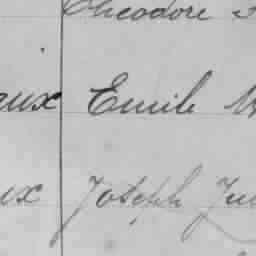 Theodore
aux Emile
ux Joseph